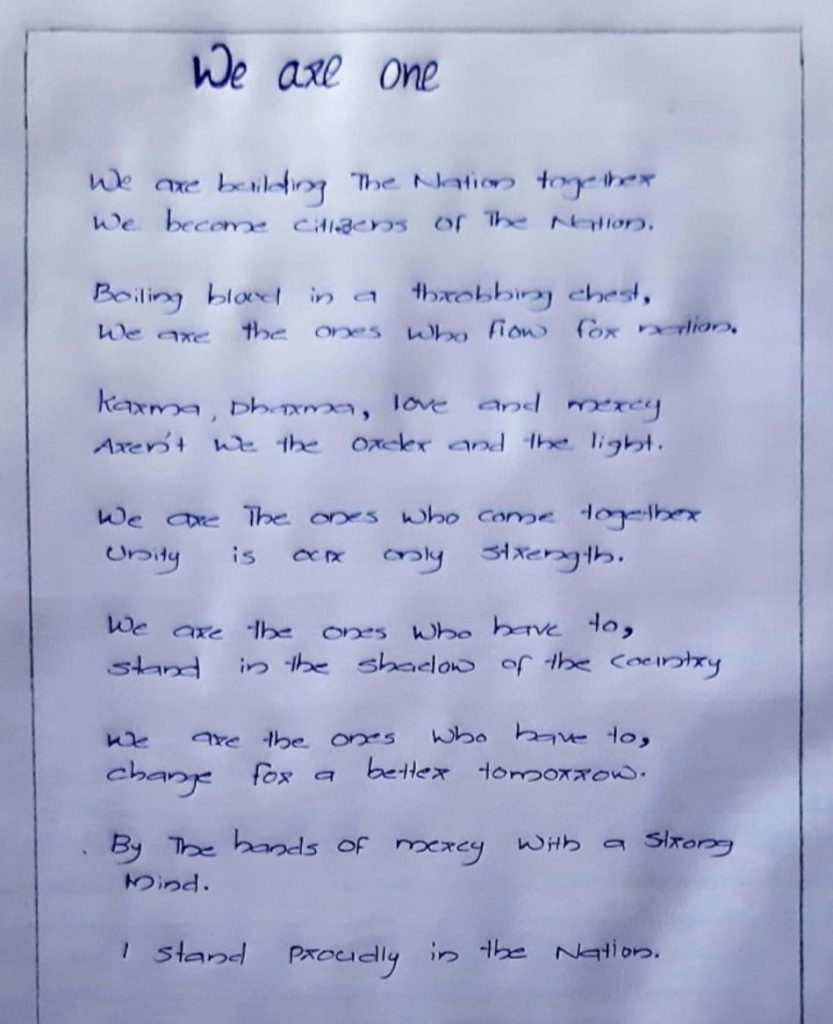 We are one
We are building The Nation together
We become citizens of The Nation.
Boiling blood in a throbbing chest,
We are the ones who flow for nation.
Karma, Dharma, love and mercy
Aren't we the order and the light.
We are The ones who come together
Unity is our only strength.
We are the ones who have to,
stand in the shadow of the country
We are the ones who have to,
change for a better tomorrow.
By The hands of mercy with a strong
Mind.
I stand proudly in the Nation.